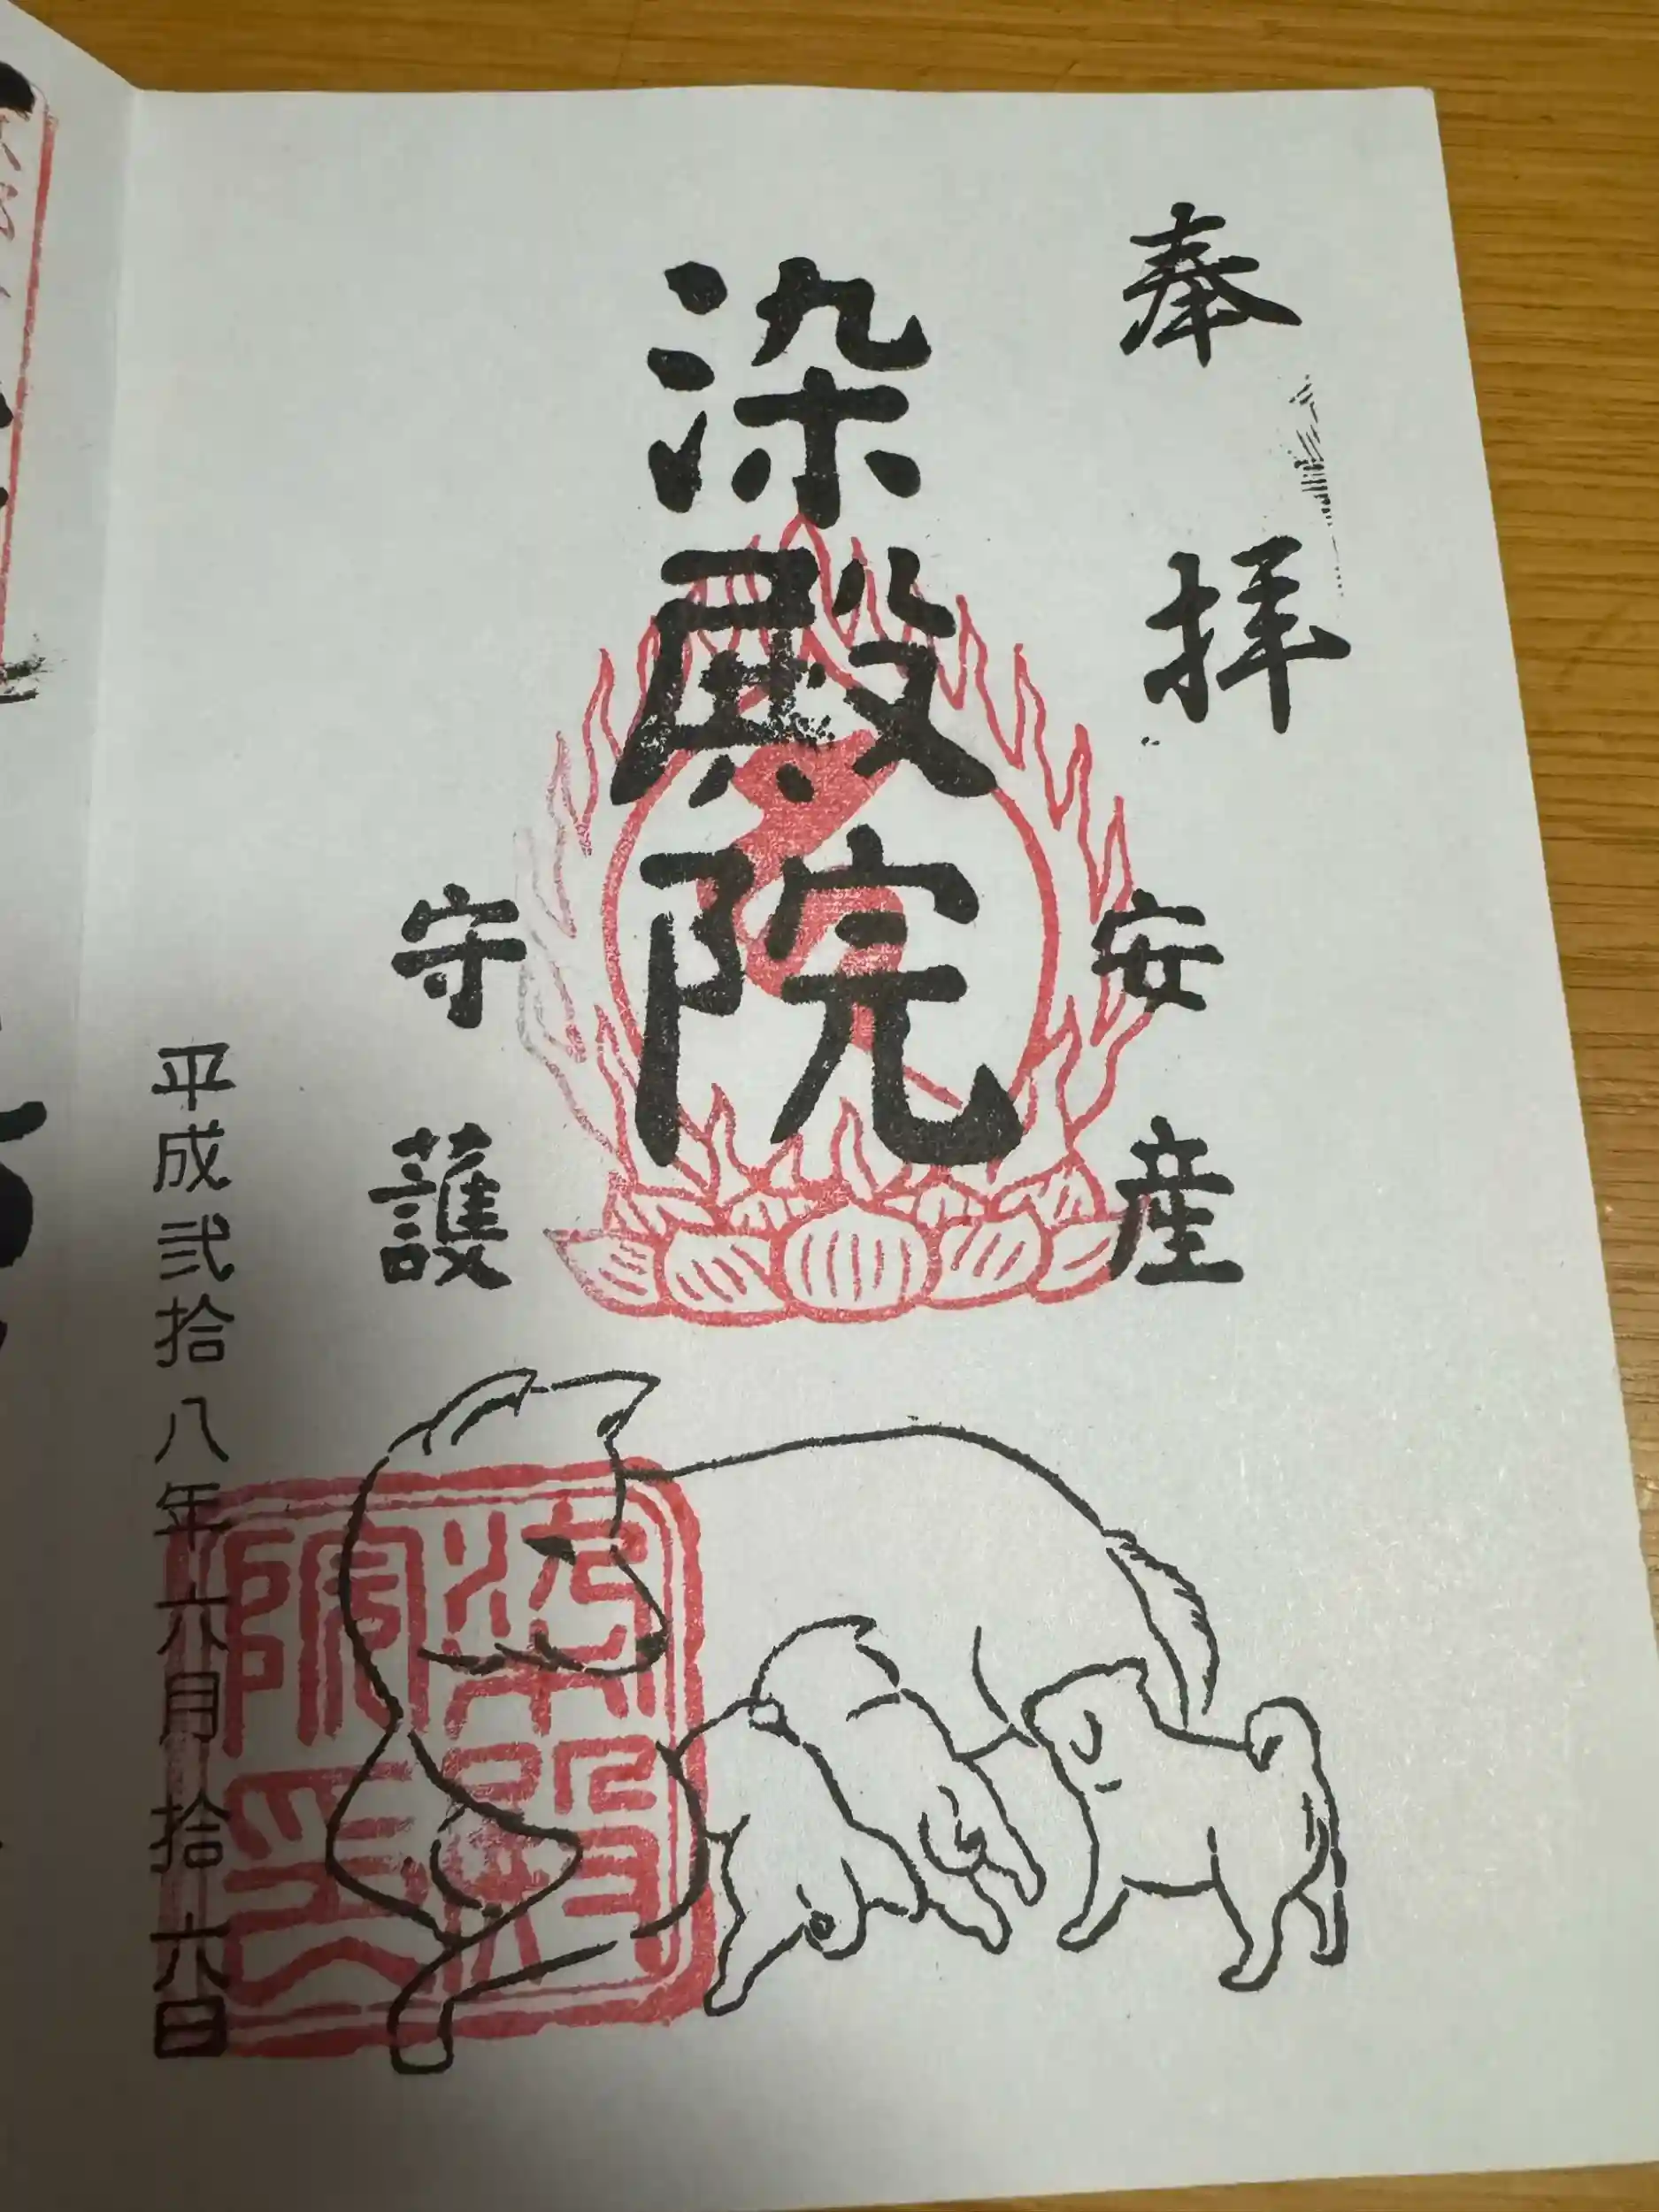 奉拝
安産
染殿院
守護
平成弐拾八年六月拾六日
染殿院印